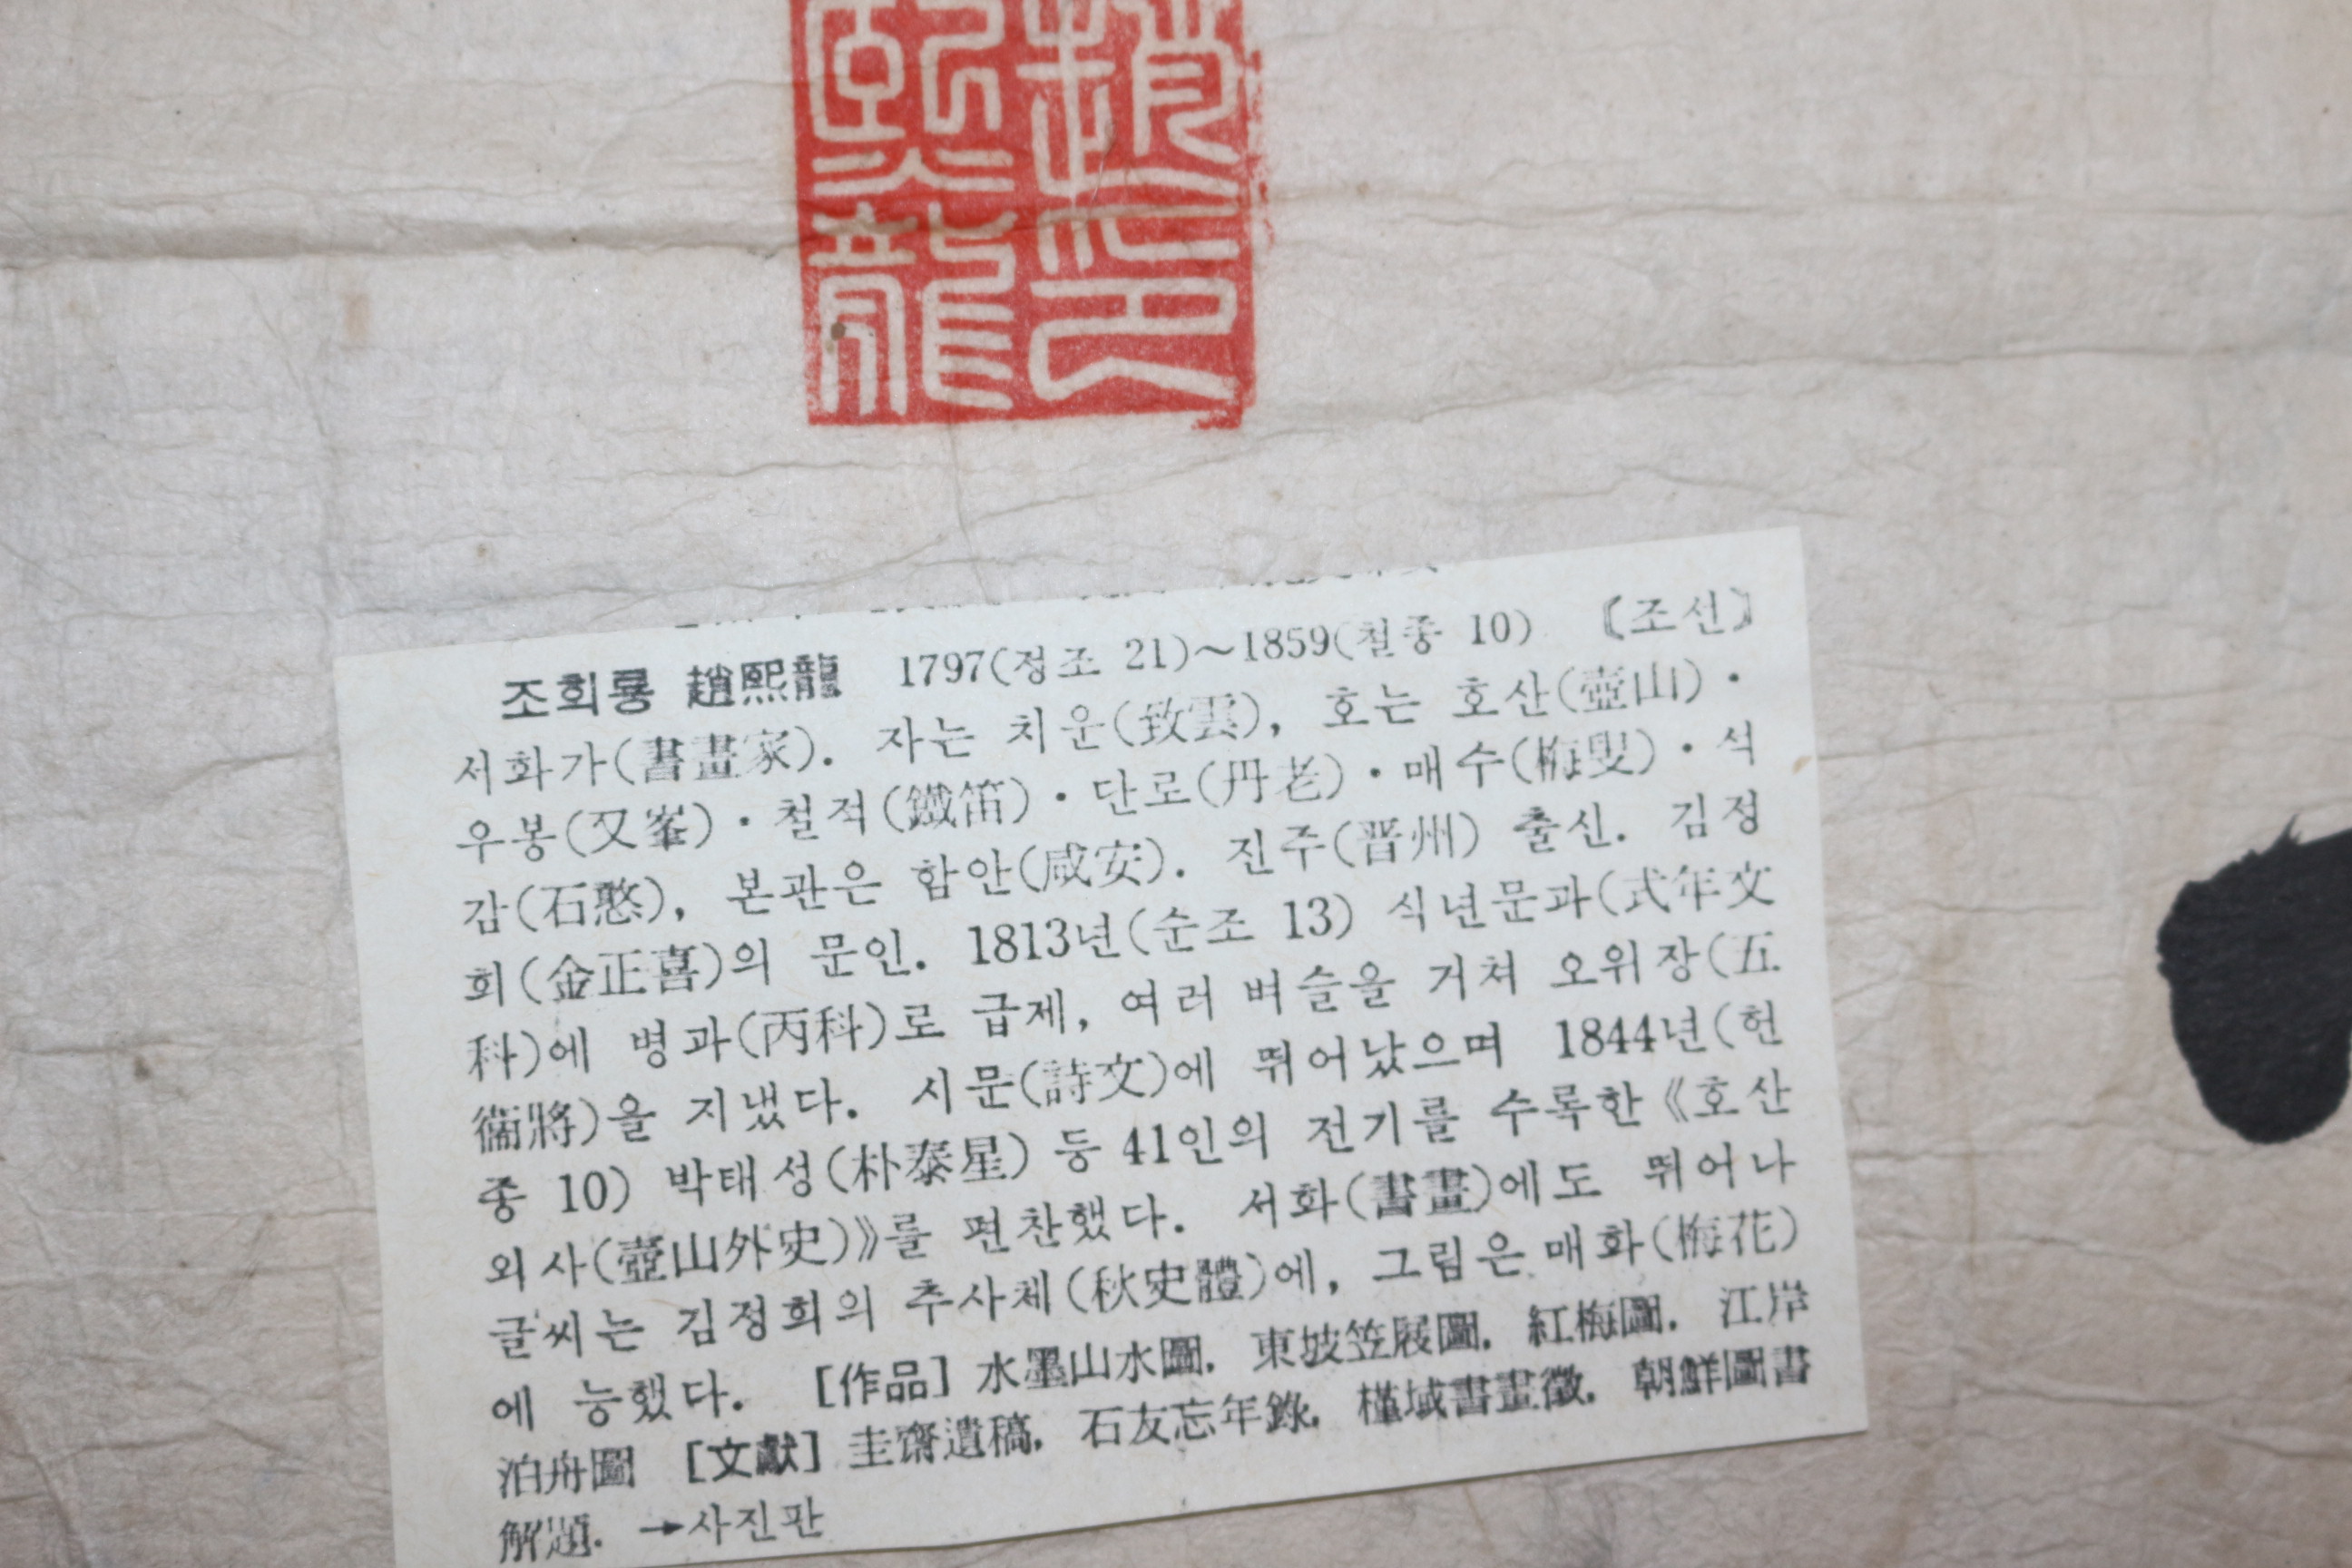 趙熙
印龍
조희룡 趙熙龍 1797(정조 21)～1859(철종 10) 〔조선〕
서화가(書畫家). 자는 치운(致雲), 호는 호산(壺山)·
우봉(又峯)·철적(鐵笛)·단로(丹老)·매수(梅叟)·석
감(石憨), 본관은 함안(咸安). 진주(晋州) 출신. 김정
희(金正喜)의 문인. 1813년(순조 13) 식년문과(式年文
科)에 병과(丙科)로 급제, 여러 벼슬을 거쳐 오위장(五
衞將)을 지냈다. 시문(詩文)에 뛰어났으며 1844년(헌
종 10) 박태성(朴泰星) 등 41인의 전기를 수록한 《호산
외사(壺山外史)》를 편찬했다. 서화(書畫)에도 뛰어나
글씨는 김정희의 추사체(秋史體)에, 그림은 매화(梅花)
에 능했다. [作品] 水墨山水圖. 東坡笠屐圖. 紅梅圖. 江岸
泊舟圖 [文獻] 圭齋遺稿. 石友忘年錄. 槿域書畫徵. 朝鮮圖書
解題. →사진판